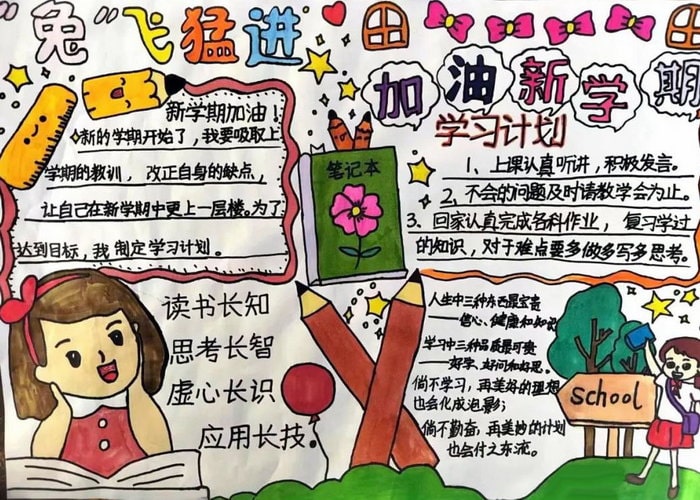 "兔"飞猛进
加油新学期
新学期加油！
新的学期开始了，我要吸取上
学期的教训，改正自身的缺点，
让自己在新学期中更上一层楼。为了
达到目标，我制定学习计划。
笔记本
学习计划
1、上课认真听讲，积极发言。
2、不会的问题及时请教学会为止。
3、回家认真完成各科作业，复习学过
的知识，对于难点要多做多写多思考。
读书长知
思考长智
虚心长识
应用长技。
人生中三种东西最宝贵
——信心、健康和知识
学习中三种品质最可贵
——好学、好问和好思。
倘不学习，再美好的理想
也会化成泡影；
倘不勤奋，再美妙的计划
也会付之东流。
school